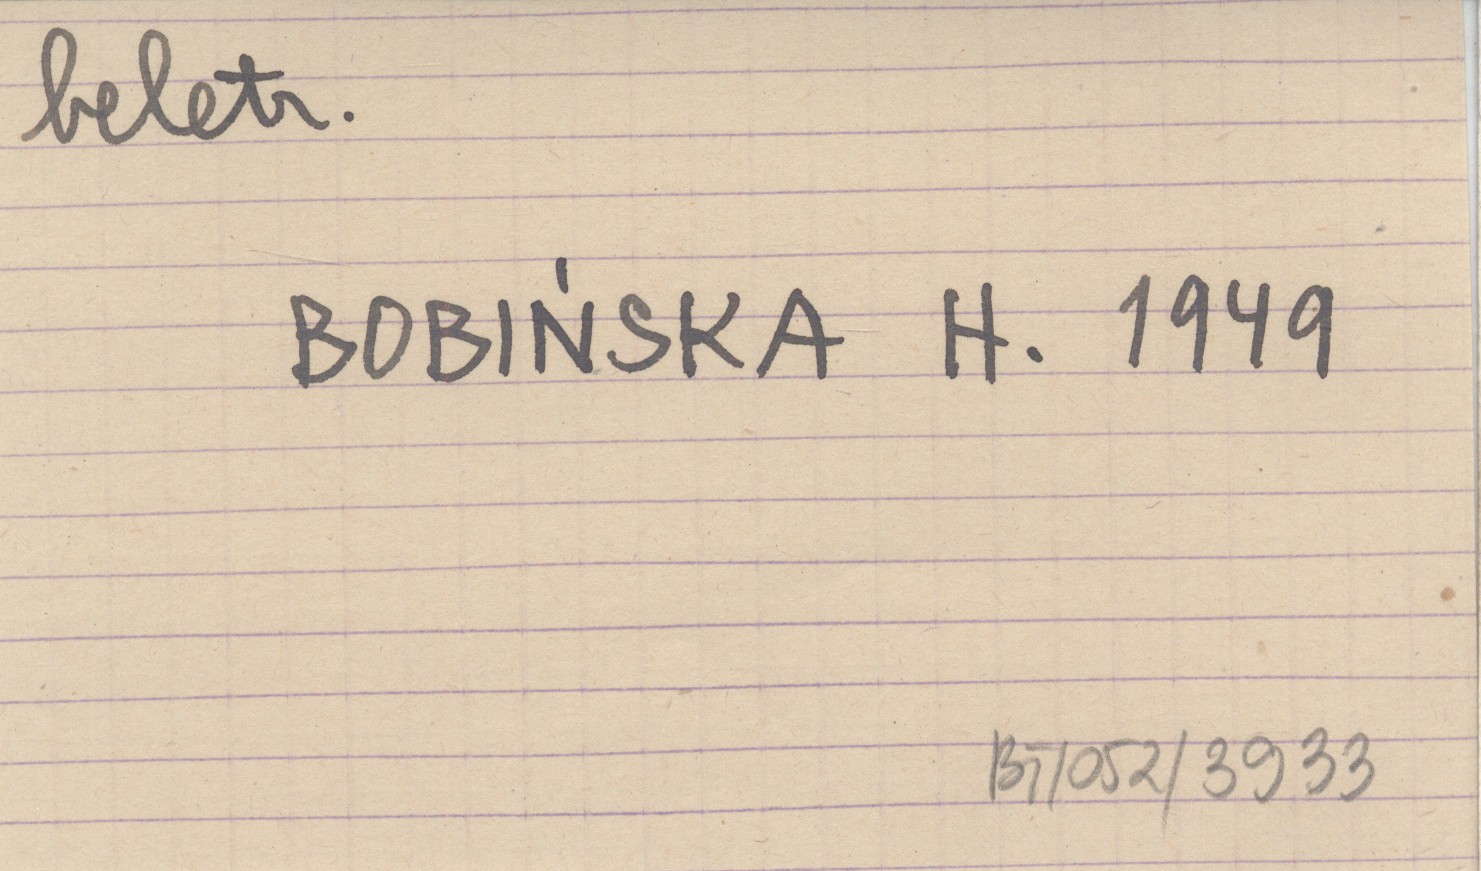 beletr.
BOBIŃSKA H. 1949
BT/052/3933